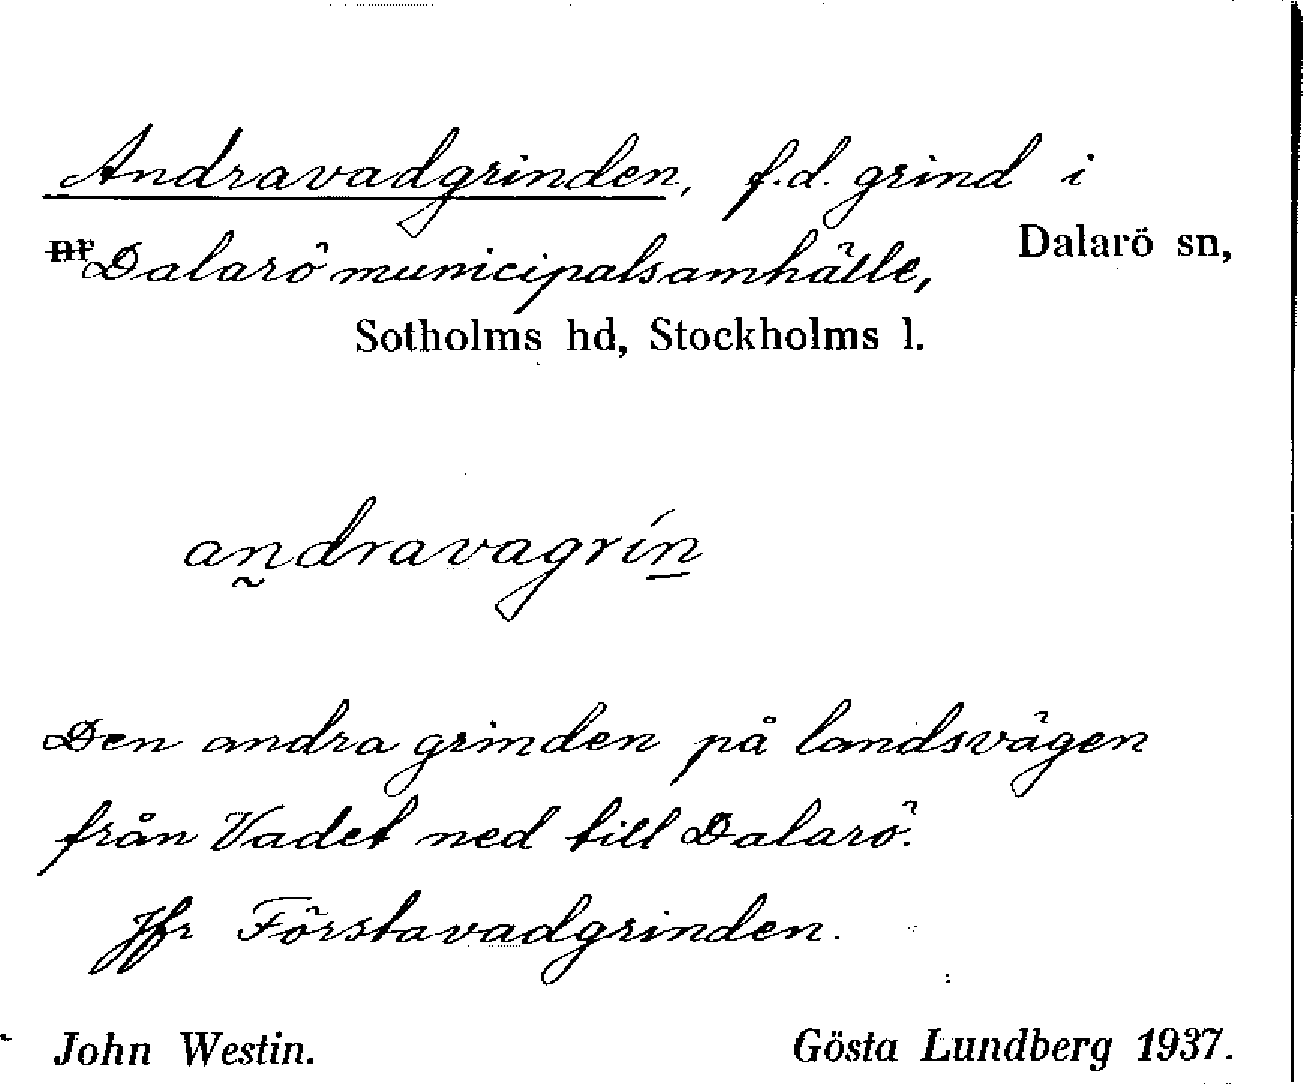 Andravadgrinden, f.d. grind i
nr Dalarö municipalsamhälle, Dalarö sn,
Sotholms hd, Stockholms l.
an̰dravagrín̲
Den andra grinden på landsvägen
från Vadet ned till Dalarö.
Jfr Förstavadgrinden.
John Westin. Gösta Lundberg 1937.